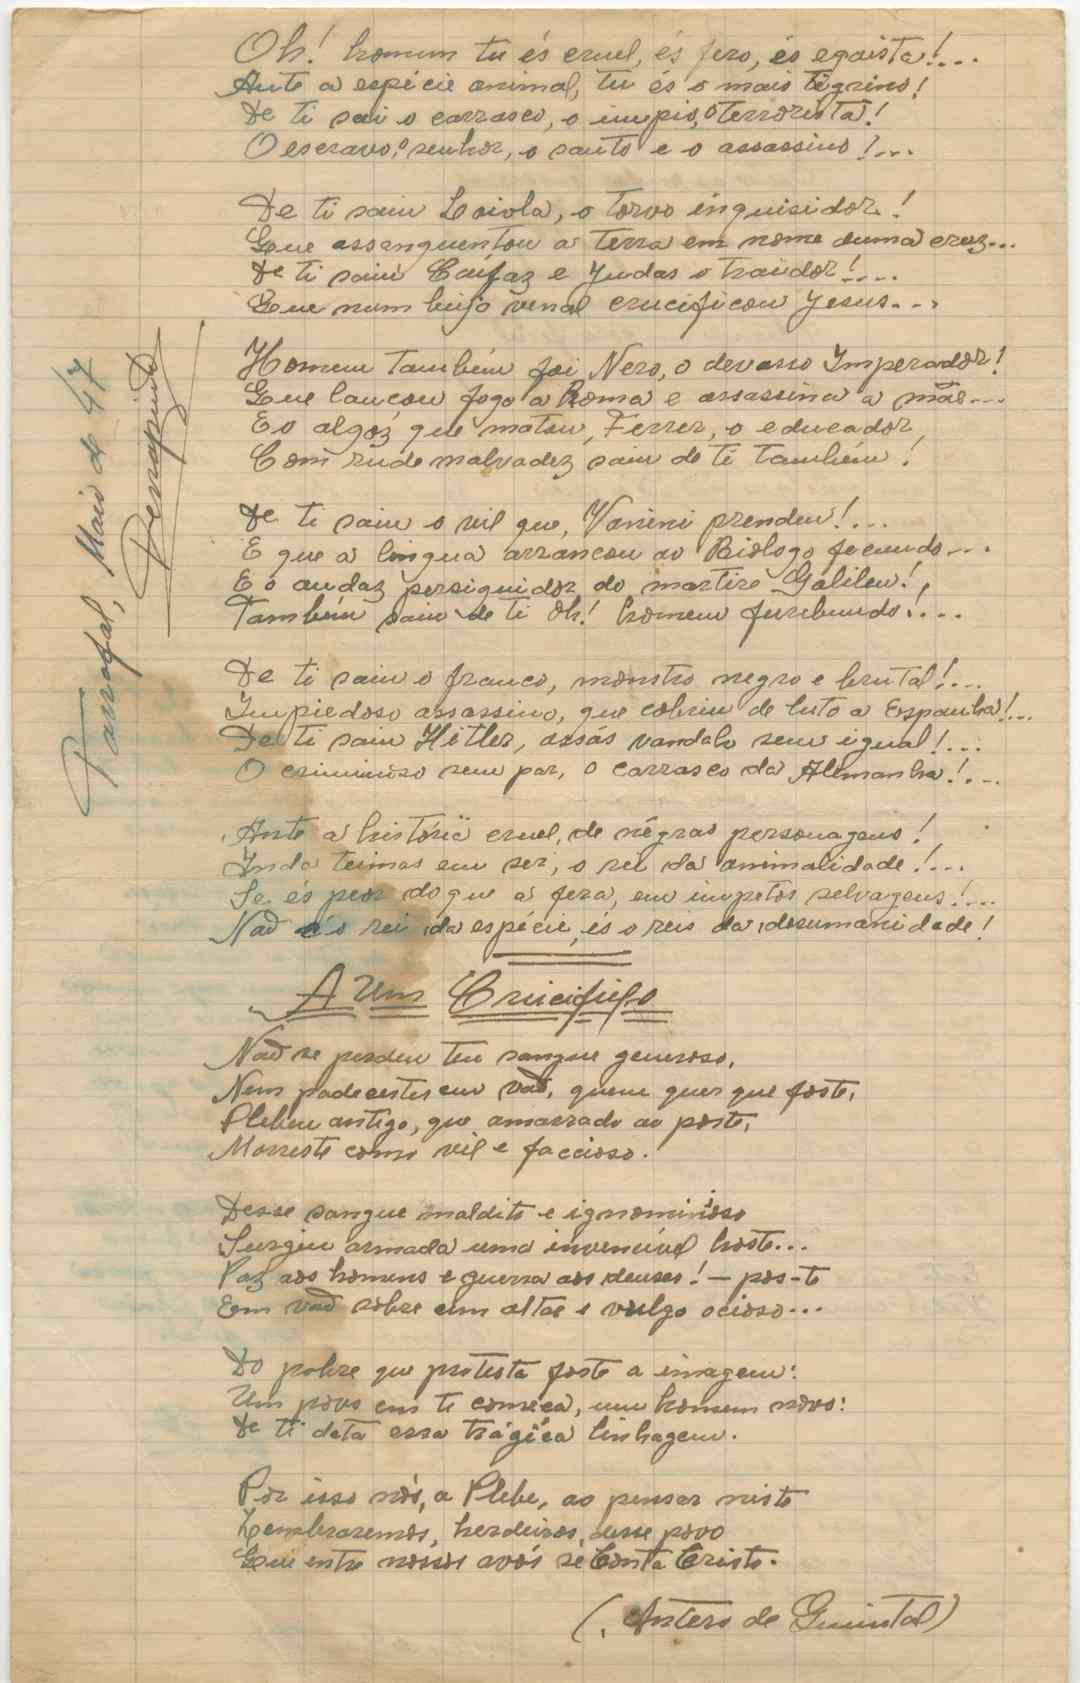 Oh! homem tu és cruel, és fero, és egoista!...
Ante a espécie animal, tu és o mais tigrino!
De ti sai o carrasco, o impio, o terrorista!
O escravo, o senhor, o santo e o assassino!...
De ti saiu Loiola, o torvo inquisidor!
Que assanguentou a terra em nome duma cruz...
De ti saiu Caifaz e Judas o traidor!...
Que num beijo venal crucificou Jesus...
Homem também foi Nero, o devasso Imperador!
Que lançou fogo a Roma e assassina a mãe...
E o algóz que matou, Ferrer, o educador,
Com rude malvadez saiu de ti também!
De ti saiu o vil que, Vanini prendeu!...
E que a lingua arrancou ao Biólogo fecundo...
E o audaz perseguidor do martire Galileu!
Também saiu de ti oh! homem furibundo!...
De ti saiu o franco, monstro negro e brutal!...
Impiedoso assassino, que cobriu de luto a Espanha!...
De ti saiu Hitler, assás vandalo sem igual!...
O criminoso sem par, o carrasco da Alemanha!...
Ante a história cruel, de négras personagens!
Inda teimas em ser, o rei da animalidade!...
Se és peor do que a fera, em impetos selvagens!...
Não és o rei da espécie, és o reis da desumanidade!
Tarrafal, Maio de 47
A Um Crucifixo
Não se perdeu teu sangue generoso,
Nem padecestes em vão, quem quer que foste,
Plebeu antigo, que amarrado ao poste,
Morreste como vil e faccioso.
Desse sangue maldito e ignominioso
Surgiu armada uma invencível hoste...
Paz aos homens e guerra aos deuses! - pos-te
Em vão sobre um altar o vulgo ocioso...
Do pobre que protesta foste a imagem:
Um povo em ti começa, um homem novo:
De ti data essa trágica linhagem.
Por isso nós, a Plebe, ao pensar nisto
Lembraremos, herdeiros, desse povo
Que entre nossos avós se Conta Cristo.
(Antero de Quintal)